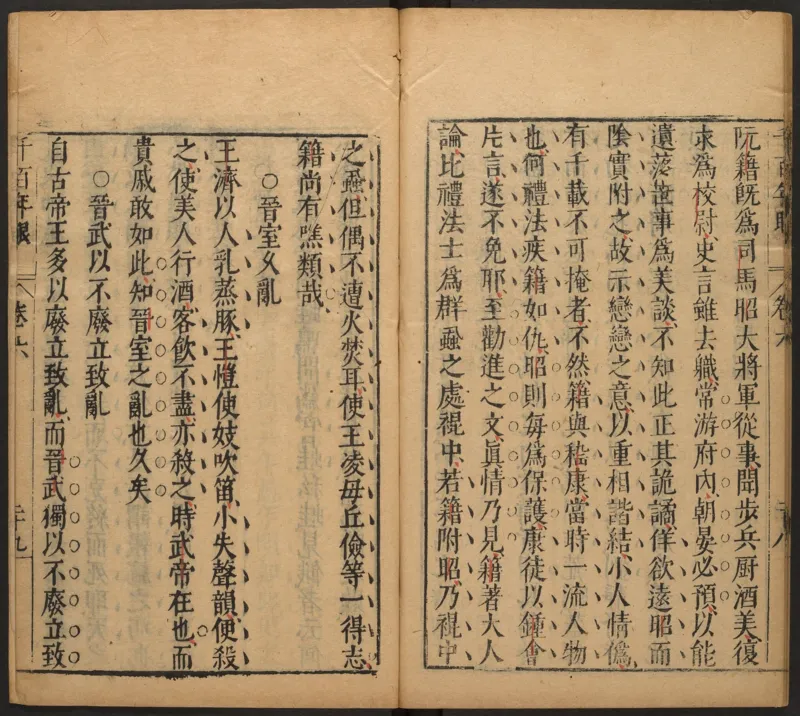 阮籍既爲司馬昭大將軍從事聞步兵厨酒美復
求爲校尉史言雖去職常游府內朝晏必預以能
遺落世事爲美談不知此正其詭譎佯欲遠昭而
陰實附之故示戀戀之意以重相諧結小人情僞
有千載不可掩者不然籍與嵇康當時一流人物
也何禮法疾籍如仇昭則每爲保護康徒以鍾會
片言遂不免耶至勸進之文眞情乃見籍著大人
論比禮法士爲群蝨之處裩中若籍附昭乃裩中
之蝨但偶不遭火焚耳使王凌毋丘儉等一得志
籍尚有噍類哉
○晉室久亂
王濟以人乳蒸豚王愷使妓吹笛小失聲韻便殺
之使美人行酒客飮不盡亦殺之時武帝在也而
貴戚敢如此知晉室之亂也久矣
○晉武以不廢立致亂
自古帝王多以廢立致亂而晉武獨以不廢立致
千百年眼
卷六
二十九